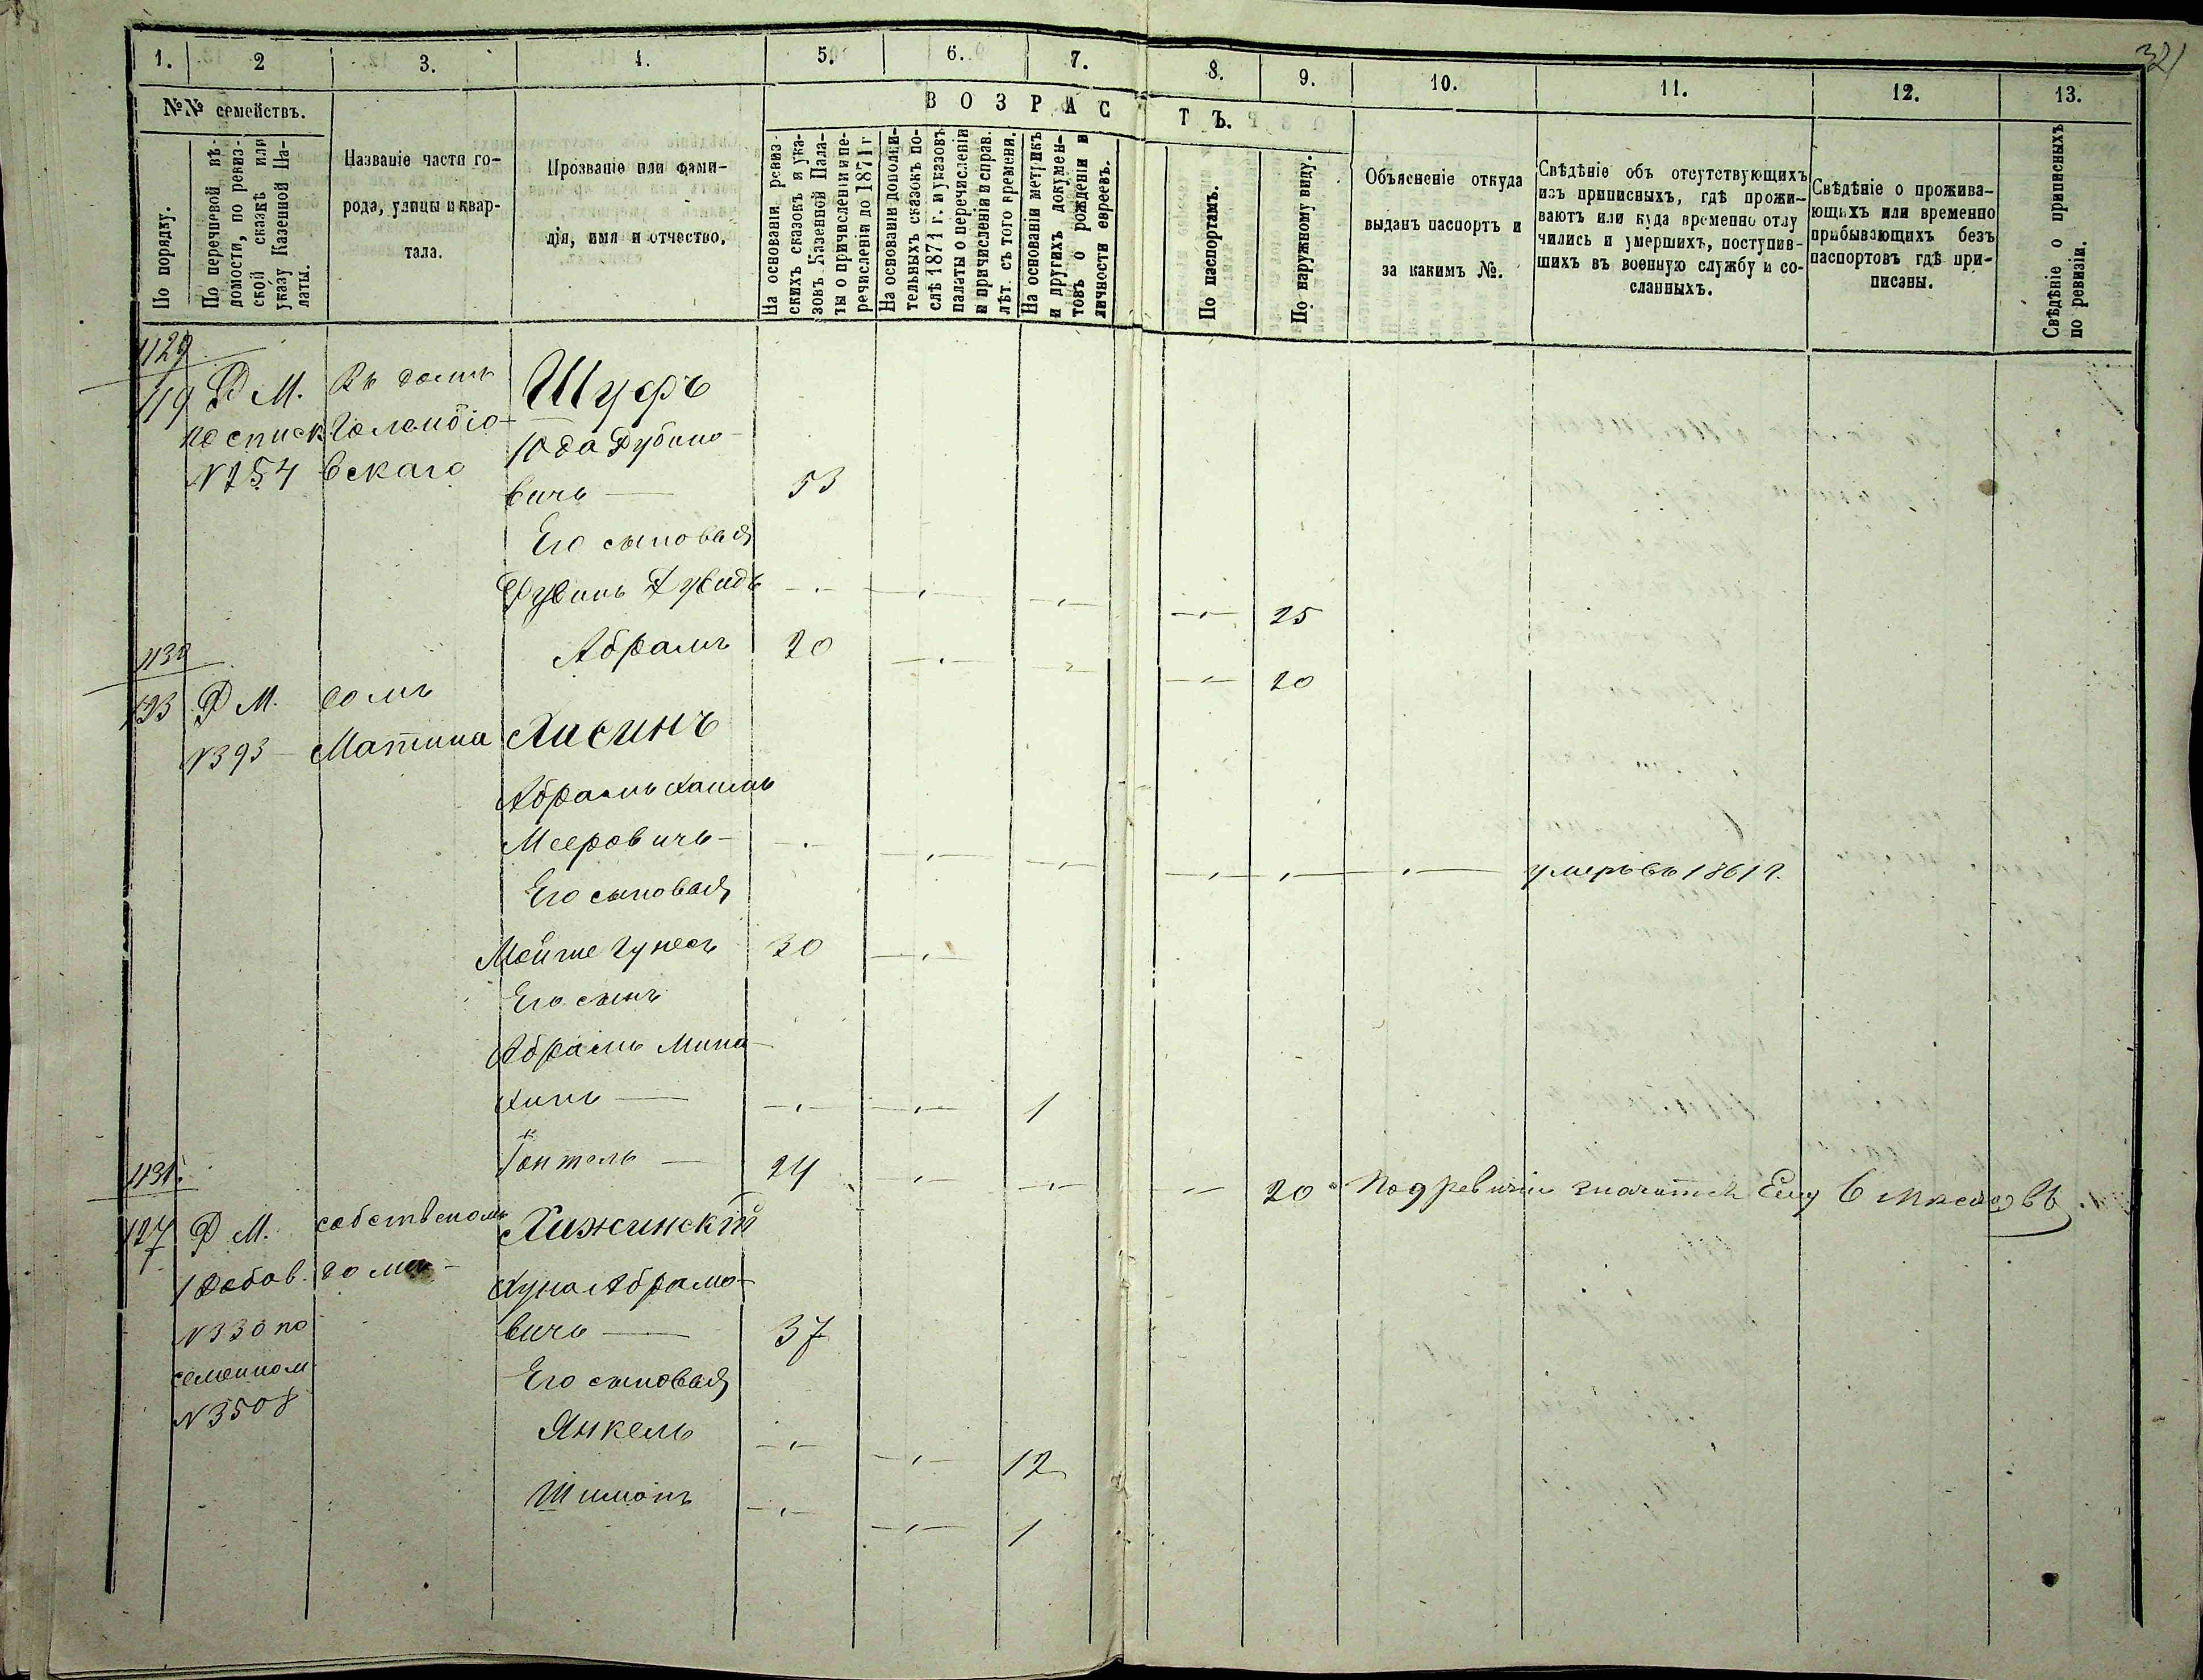 321
1. 2 3. 4. 5. 6. 7. 8. 9. 10. 11. 12. 13.
№№ семействъ.
По порядку.
По перечневой вѣ-
домости, по ревиз-
ской сказкѣ или
указу Казенной Па-
латы.
Названіе части го-
рода, улицы и квар-
тала.
Прозваніе или фами-
лія, имя и отчество.
ВОЗРАСТЪ.
На основаніи ревиз-
скихъ сказокъ и ука-
зовъ Казенной Пала-
ты о причисленіи и пе-
речисленія до 1871 г.
На основаніи дополни-
тельныхъ сказокъ по-
слѣ 1871 г. и указовъ
палаты о перечисленіи
и причисленіи и справ.
лѣт. съ того времени.
На основаніи метрикъ
и другихъ докумен-
товъ о рожденіи и
личности евреевъ.
По паспортамъ.
По наружному виду.
Объясненіе откуда
выданъ паспортъ и
за какимъ №.
Свѣдѣніе объ отсутствующихъ
изъ приписныхъ, гдѣ прожи-
ваютъ или куда временно отлу
чились и умершихъ, поступив-
шихъ въ военную службу и со-
сланныхъ.
Свѣдѣніе о прожива-
ющихъ или временно
прибывающихъ безъ
паспортовъ гдѣ при-
писаны.
Свѣдѣніе о приписныхъ
по ревизіи.
1129
119 Р М. Въ домѣ Шуфъ
по списк. Голембіо- Юда Рубино-
№ 154 вскаго вичъ — 53
Его сыновья
Рувинъ Дувидъ 25
Абрамъ 20 20
1130
123 Р М. домъ
№ 393 — Матина Хисинъ
Абрамъ Хаимъ
Мееровичъ — умеръ въ 1861 г.
Его сыновья
Мойше Гунесъ 30
Его сынъ
Абрамъ Мина-
химъ — 1
Гентель — 24 20 Под ревизіи значится Ему 6 мѣсяцовъ.
1131.
127 Р М. собственомъ Хижинскій
1 добав. доме — Хуна Абрамо-
№ 330 по вичъ — 37
семейном Его сыновья
№ 3508
Янкель 12
Шимонъ 1